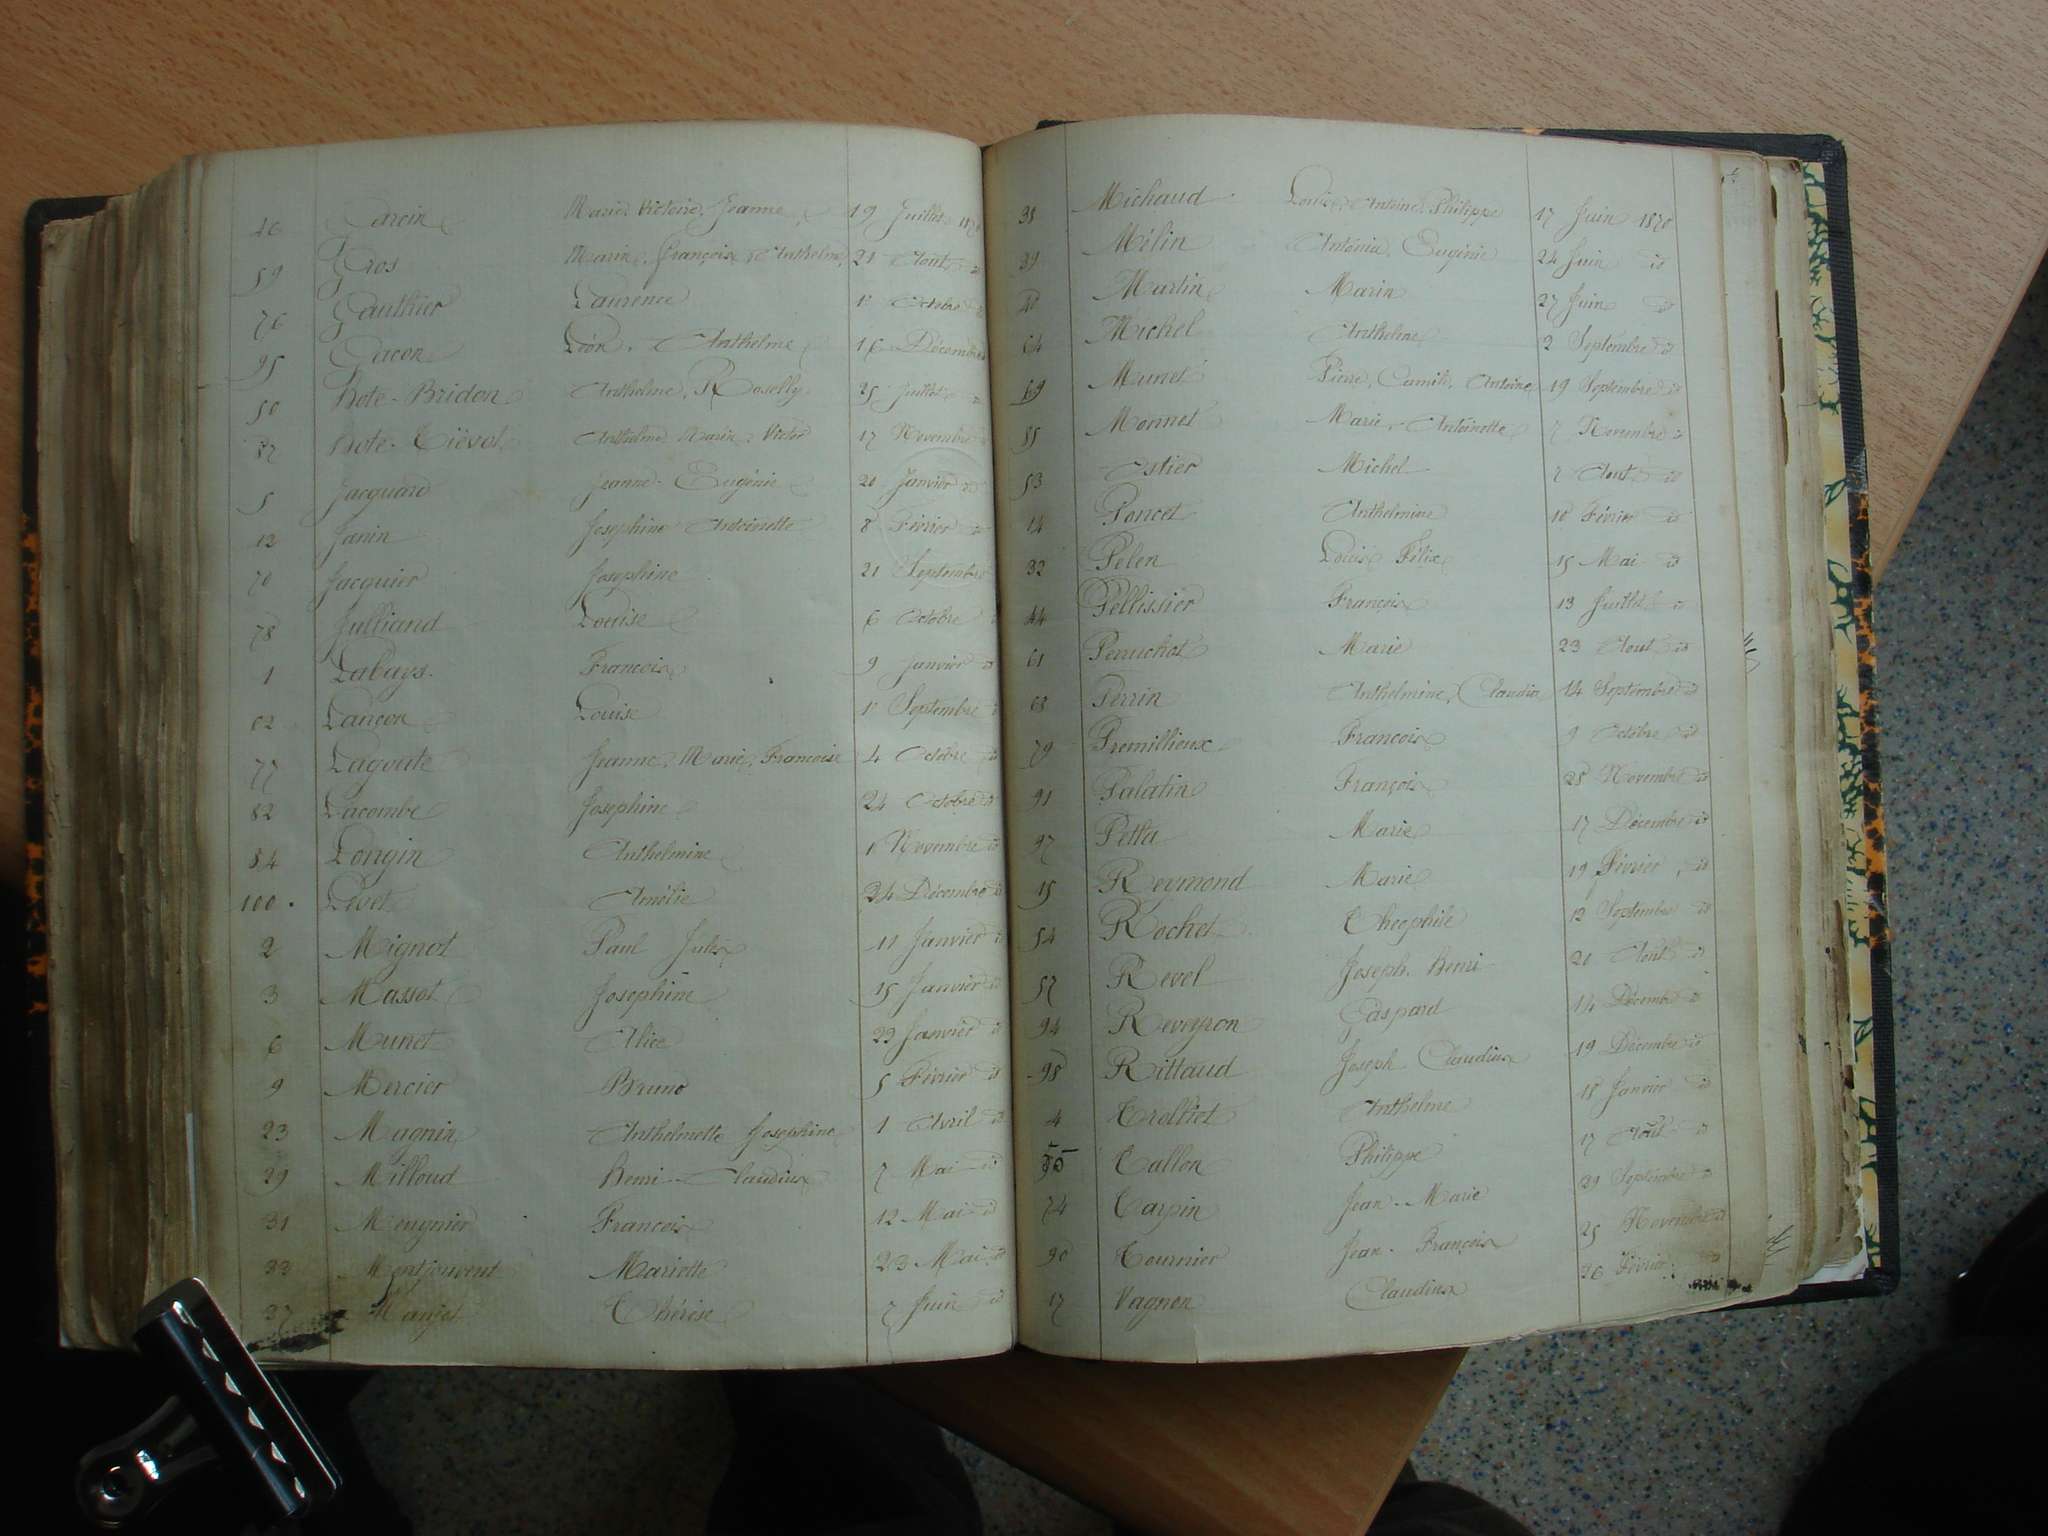 46 Garcin Marie, Victoire, Jeanne 19 Juillet 1870
59 Gros Marie, François, Anthelme 21 Aout id
76 Gauthier Laurence 1 Octobre id
95 Gacon Léon, Anthelme 16 Décembre id
50 hote-Bridon Anthelme, Roselly 25 Juillet id
87 hote- Anthelme Marin Victor 17 Novembre id
5 Jacquard Jeanne Eugénie 20 Janvier id
12 Janin Josephine Antoinette 8 Février id
70 Jacquier Josephine 21 Septembre
78 Julliand Louise 6 Octobre id
1 Labays François 9 Janvier id
62 Lançon Louise 1 Septembre id
77 Lagoute Jeanne, Marie, Francoise 4 Octobre id
82 Lacombe Josephine 24 Octobre id
84 Longin Anthelmine 1 Novembre id
100 Livet Amélie 24 Décembre id
2 Mignot Paul Jules 11 Janvier id
3 Massot Josephine 15 Janvier id
6 Munet Alice 22 Janvier id
9 Mercier Bruno 5 Février id
23 Magnin Anthelmette Josephine 1 Avril id
29 Milloud henri Claudius 7 Mai id
31 Meugnier François 12 Mai id
33 Montjouvent Mariette 23 Mai id
37 Manjot Thérèse 7 Juin id
38 Michaud Louis, Antoine, Philippe 17 Juin 1870
39 Mélin Antónia, Eugénie 24 Juin id
40 Martin Marin 27 Juin id
64 Michel Anthelme 2 Septembre id
69 Munet Pierre, Camile, Antoine 19 Septembre id
85 Monnet Marie, Antoinette 7 Novembre id
53 Ostier Michel 7 Aout id
14 Poncet Anthelmine 10 Février id
32 Pelen Louis Félix 15 Mai id
44 Pellissier François 13 Juillet id
61 Perruchot Marie 23 Aout id
68 Perrin Anthelmine, Claudia 14 Septembre id
79 Premillieux François 9 Octobre id
91 Palatin François 28 Novembre id
97 Petta Marie 17 Décembre id
15 Reymond Marie 19 Février id
54 Rochet Théophile 12 Septembre id
57 Revel Joseph, henri 20 Aout id
94 Reveyron Gaspard 14 Décembre id
98 Rittaud Joseph Claudius 19 Décembre id
4 Trolliet Anthelme 18 Janvier id
Tallon Philippe 17 Aout id
74 Tarpin Jean-Marie 29 Septembre id
90 Tournier Jean-François 25 Novembre id
17 Vagnon Claudius 26 Février